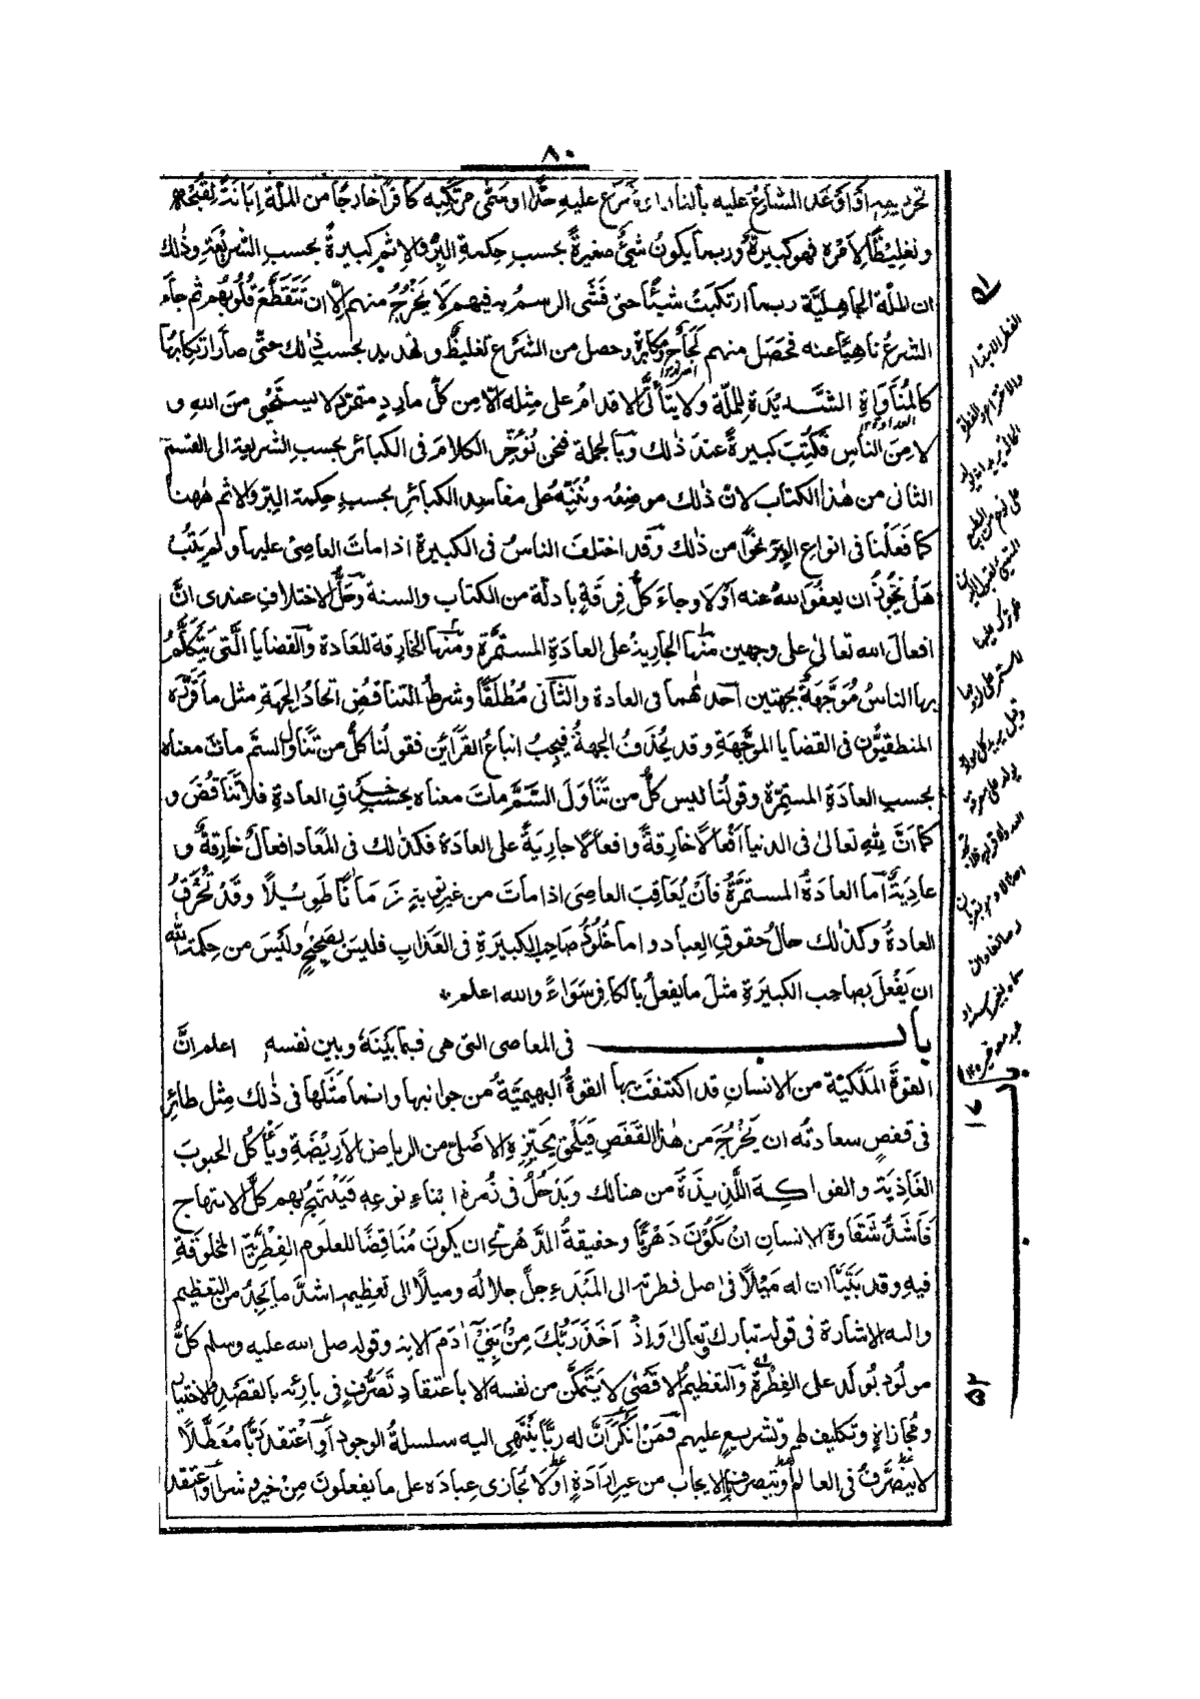 ٨٠
تحريمه او اوعد الشارع عليه بالنار او شرع عليه حدّا او سمّى مرتكبه كافرًا خارجًا من الملة إبانةً لقبحه
وتغليظًا لأمره فهو كبيرة وربما يكون شئ صغيرة بحسب حكمة البر والاثم كبيرةً بحسب الشريعة وذلك
ان الملة الجاهلية ربما ارتكبت شيئًا حتى فشى الرسم به فيهم لا يخرج منهم إلا ان تتقطع قلوبهم ثم جاء
الشرع ناهيًا عنه فحصل منهم لجاج ومكابرة وحصل من الشرع تغليظ وتهديد بحسب ذلك حتى صار ارتكابها
كالمُناواة الشديدة للملة ولا يتأتى الاقدام على مثله الا من كل مارد متمرد لا يستحيى من الله و
لا من الناس فكتبت كبيرةً عند ذلك وبالجملة فنحن نؤخر الكلام فى الكبائر بحسب الشريعة الى القسم
الثانى من هذا الكتاب لان ذلك موضعه وننبّه على مفاسد الكبائر بحسب حكمة البر والاثم ههنا
كما فعلنا فى انواع البر نحوًا من ذلك وقد اختلف الناس فى الكبيرة اذا مات العاصى عليها ولم يتب
هل يجوز ان يعفو الله عنه أو لا وجاء كل فرقة بادلة من الكتاب والسنة وحل الاختلاف عندى انّ
افعال الله تعالى على وجهين منها الجارية على العادة المستمرة ومنها الخارقة للعادة والقضايا التى يتكلم
بها الناس مُوجّهة بجهتين احدهما فى العادة والثانى مطلقًا وشرط التناقض اتحاد الجهة مثل ما قرره
المنطقيون فى القضايا الموجّهة وقد يحذف الجهة فيجب اتباع القرائن فقولنا كل من تناول السم مات معناه
بحسب العادة المستمرة وقولنا ليس كل من تناول السّم مات معناه بحسب خرق العادة فلا تناقض و
كما انّ لله تعالى فى الدنيا افعالًا خارقةً وافعالًا جاريةً على العادة فكذلك فى المعاد افعال خارقة و
عاديةٌ أما العادة المستمرة فأن يُعاقب العاصى اذا مات من غير توبة زمانًا طويلًا وقد تُخرق
العادة وكذلك حال حقوق العباد واما خلود صاحب الكبيرة فى العذاب فليس بصحيح وليس من حكمة الله
ان يفعل بصاحب الكبيرة مثل ما يفعل بالكافر سواءً والله اعلم
باب فى المعاصى التى هى فيما بينه وبين نفسه اعلم انّ
القوة الملكية من الانسان قد اكتنفت بها القوة البهيمية من جوانبها وانما مثلها فى ذلك مثل طائر
فى قفص سعادته ان يخرج من هذا القفص فيلحق بحيّزه الاصلى من الرياض الاريضة ويأكل الحبوب
الغاذية والفواكه اللذيذة من هنالك ويدخل فى زمرة ابناء نوعه فيبتهج بهم كل الابتهاج
فاشد شقاوة الانسان ان يكون دهريًّا وحقيقة الدهرى ان يكون مناقضًا للعلوم الفطرية المخلوقة
فيه وقد بيّنّا ان له ميلًا فى اصل فطرته الى المبدء جل جلاله وميلًا الى تعظيمه اشد ما يجد من التعظيم
واليه الاشارة فى قوله تبارك وتعالى وَإِذْ أَخَذَ رَبُّكَ مِنْ بَنِي آدَمَ الاية وقوله صلى الله عليه وسلم كلُّ
مولود يُولَد على الفطرة والتعظيم الاقصى لا يتمكن من نفسه الا باعتقاد تصرف فى بارئه بالقصد والاختيار
ومجازاة وتكليف لهم وتشريع عليهم فمن انكر أنّ له ربًّا ينتهى اليه سلسلة الوجود أو اعتقد ربًّا معطّلًا
لا يتصرف فى العالم أو يتصرف بالايجاب من غير ارادة أو لا يجازى عباده على ما يفعلون من خير وشر أو اعتقد
٥١
١٦
٥٢